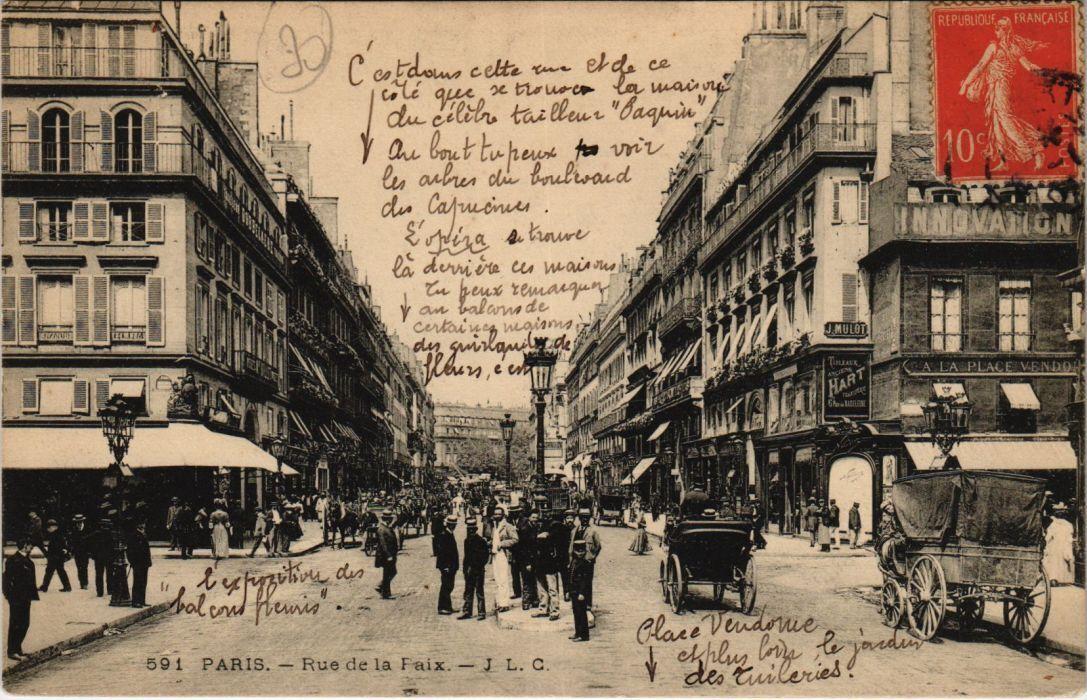 C'est dans cette rue et de ce
côté que se trouve la maison
du célèbre tailleur "Paquin"
Au bout tu peux voir
les arbres du boulevard
des Capucines.
L'opéra se trouve
là derrière ces maisons
Tu peux remarquer
au balcons de
certaines maisons
des guirlandes de
fleurs, c'est
l'expozition des
"balcons fleuris".
Place Vendome
et plus loin le jardin
des Tuileries.
REPUBLIQUE FRANÇAISE
10c
INNOVATION
J. MULOT
TABLEAUX
HART
A LA PLACE VENDO
591 PARIS. – Rue de la Paix. – J L C.